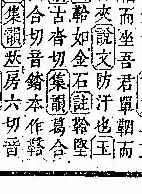 而坐吾君單鞇而
夾說文防汗也玉
鞈如金石註鞈堅
古沓切集韻葛合
合切音錔本作
集韻𠀤房六切音